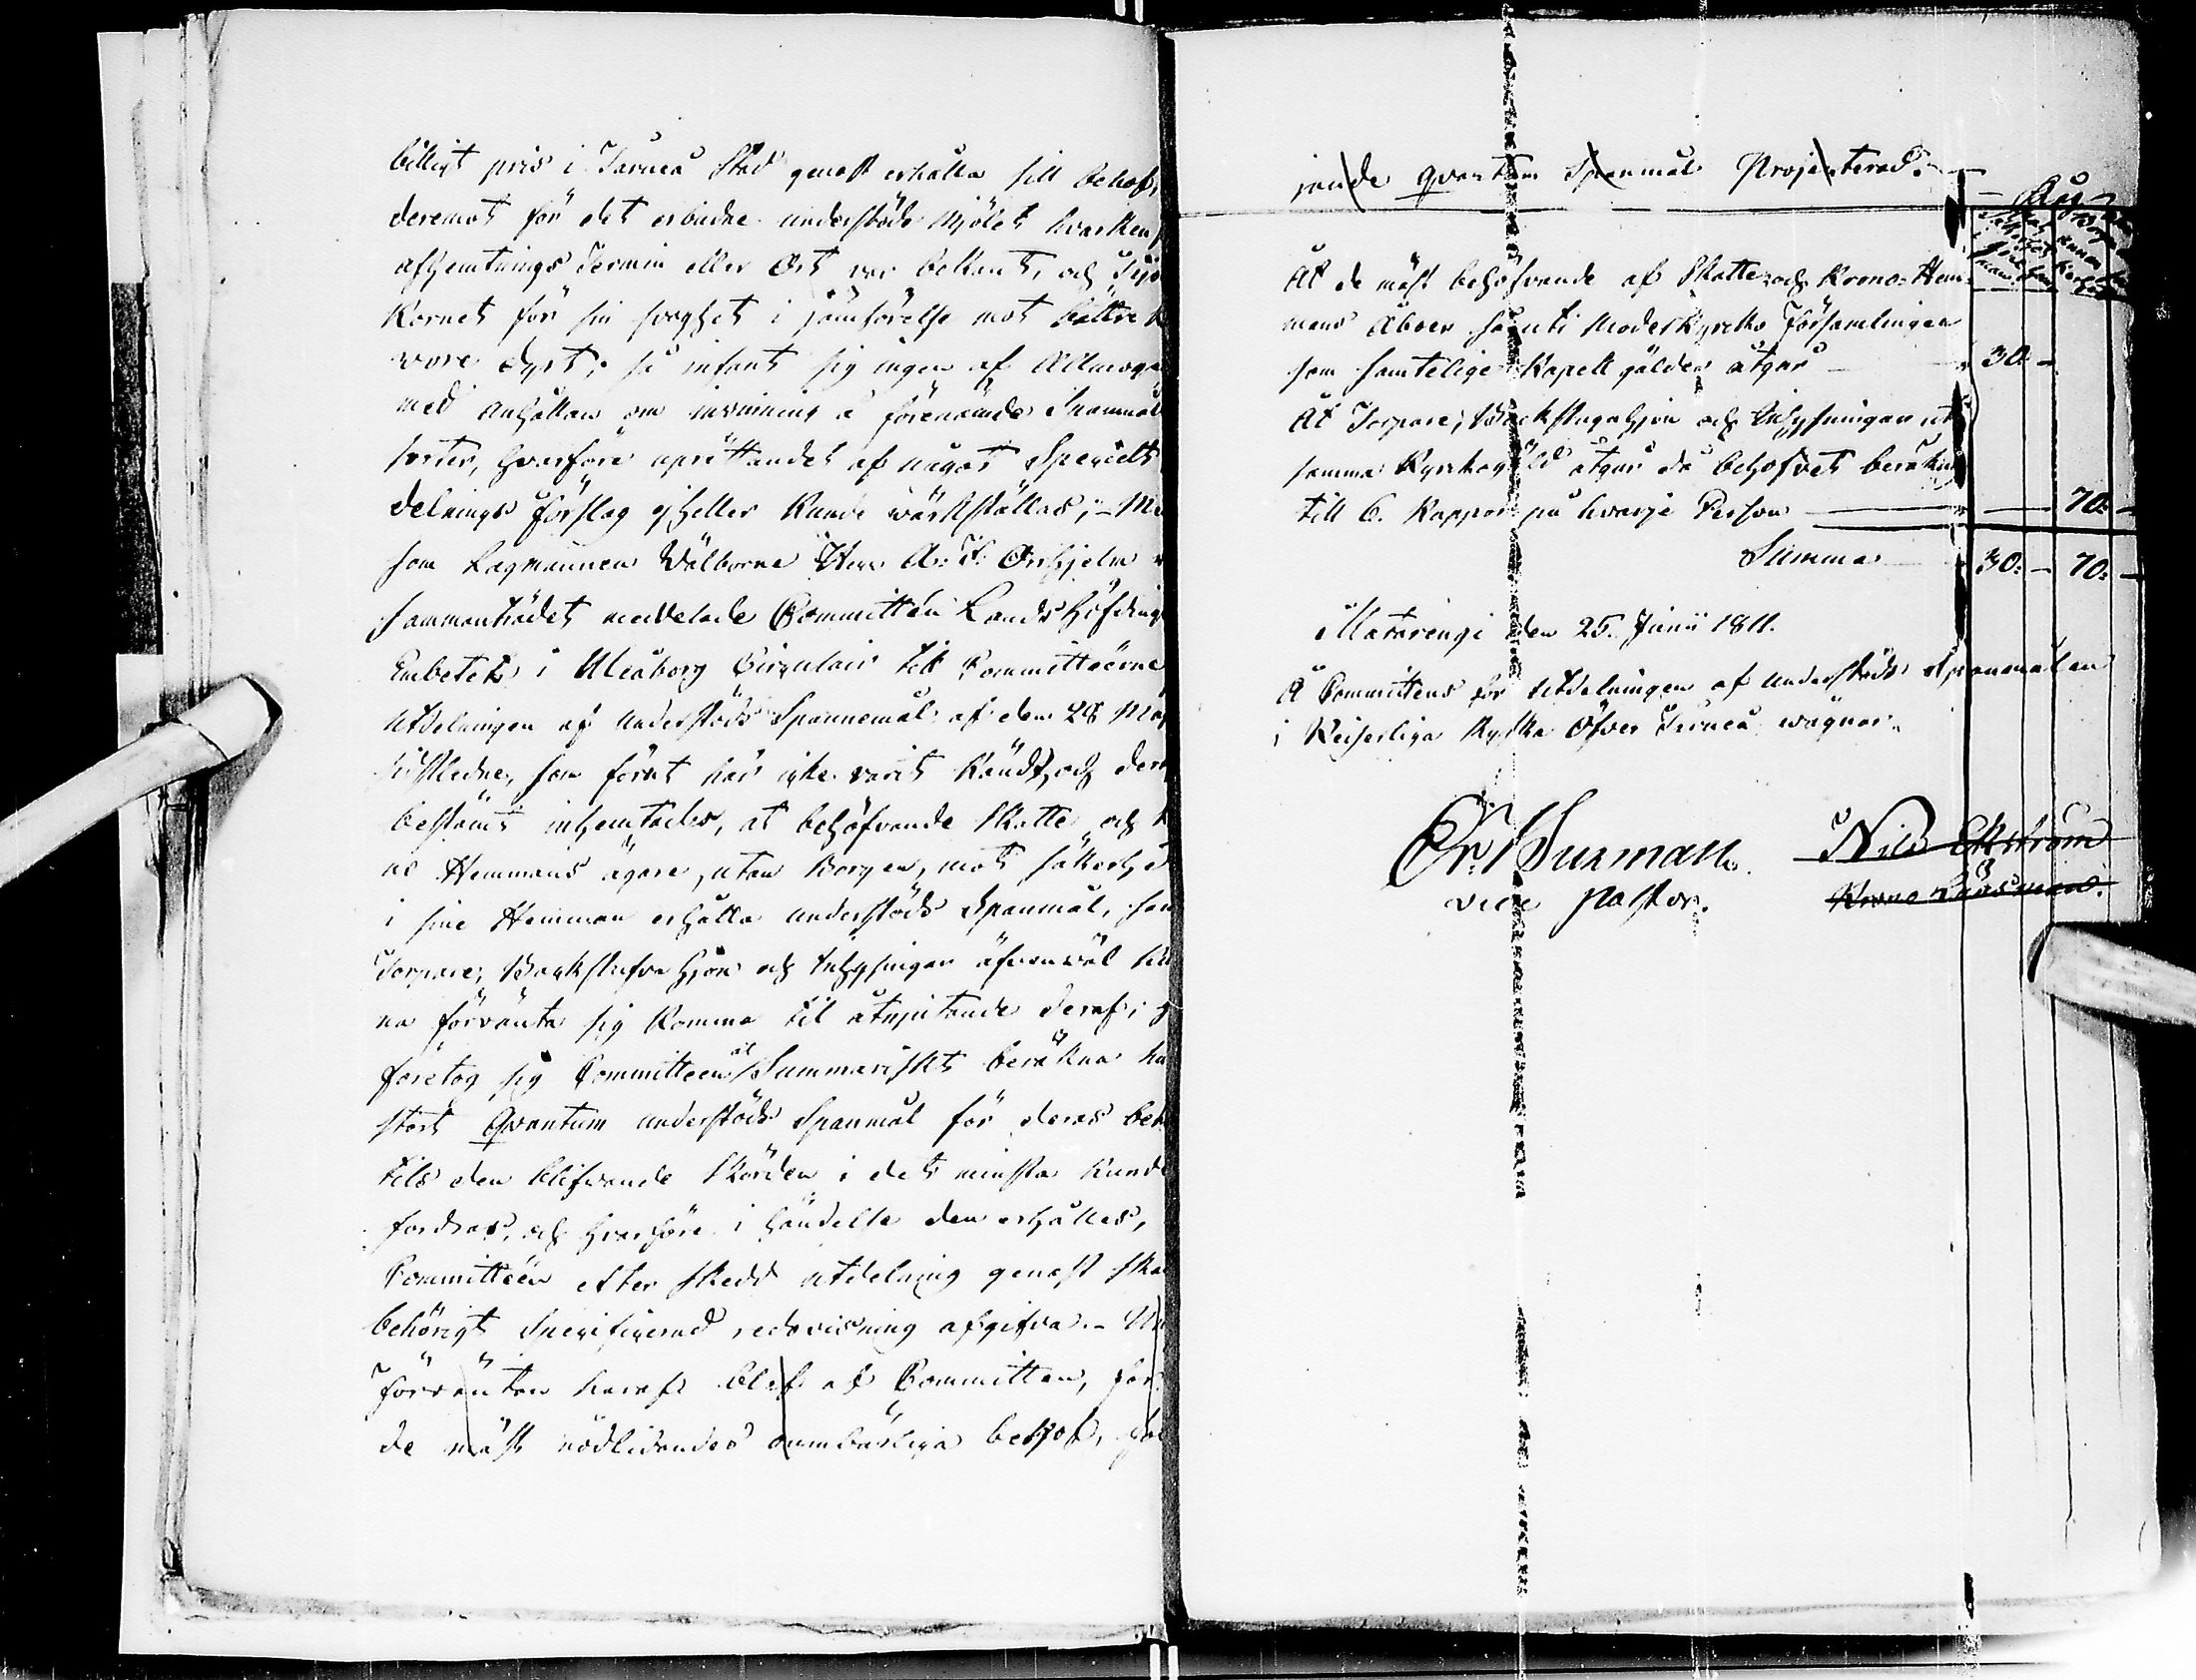 billigt pris i Torneå Stad genast erhålla till behof,
deremot för det erbudne understöds Mjölet hvarken
afhemtnings Termin eller Ort var bekant, och
Kornet för sin svaghet i jämförelse mot bättre
vore dyrt; så infant sig ingen af Allmoge
med anhållan om invisning å förenämde Spanmåls
sorter, hvarföre uprättandet af något Specielt
delnings förslag ej heller kunde värkställas; – Me
som Lagmannen Välborne Herr A. F. Orrhjelm
sammanträdet meddelade Committén Landshöfdinge
Embetets i Uleåborg Cirqulair till Committéerne
utdelningen af understöds Spannemål af den 28 Maj
sidstledne, som förut här icke varit känd, och der
bestämt inhemtades, at behöfvande Skatte och
no Hemmans ägare, utan Borgen, mot säkerhet
i sine Hemman erhålla understöds Spanmål, som
Torpare, Backstufve Hjon och Inhysingar äfvenväl
na förvänta sig komma til åtnjutande deraf;
företog sig Committeen at Summariskt beräkna hu
stort Qvantum understöds Spanmål för deras beh
tils den blifvande Skörden i det minsta kunde
fordras, och hvarföre i händelse den erhålles,
Committéen efter skedd utdelning genast ska
behörigt Specificerad redovisning afgifva. – Un
förväntan häraf blef af Committen, för
de mäst nödlidandes oumbärliga behof, föl
jande Qvantum Spanmål Projecterad.
Råg
Åt de mäst behöfvande af Skatte och Krono-Hem-
mans Åboer så uti Moderkyrko Församlingen
som samtelige Kapell gälden åtgår — 30. –
Åt Torpare, Backstuguhjon och Inhysningar ut
samma Kyrkogäld åtgår då behofvet beräknas
till 6. Kappar på hvarje Person — 70: –
Summa 30: – 70: –
Matarengi den 25. Junii 1811.
Å Committens för utdelningen af understöds Spanmålen
i Keiserliga Ryska Öfver Torneå vägnar.
Er. Burman. Nils Ekström
vice Pastor. Krono Länsman.